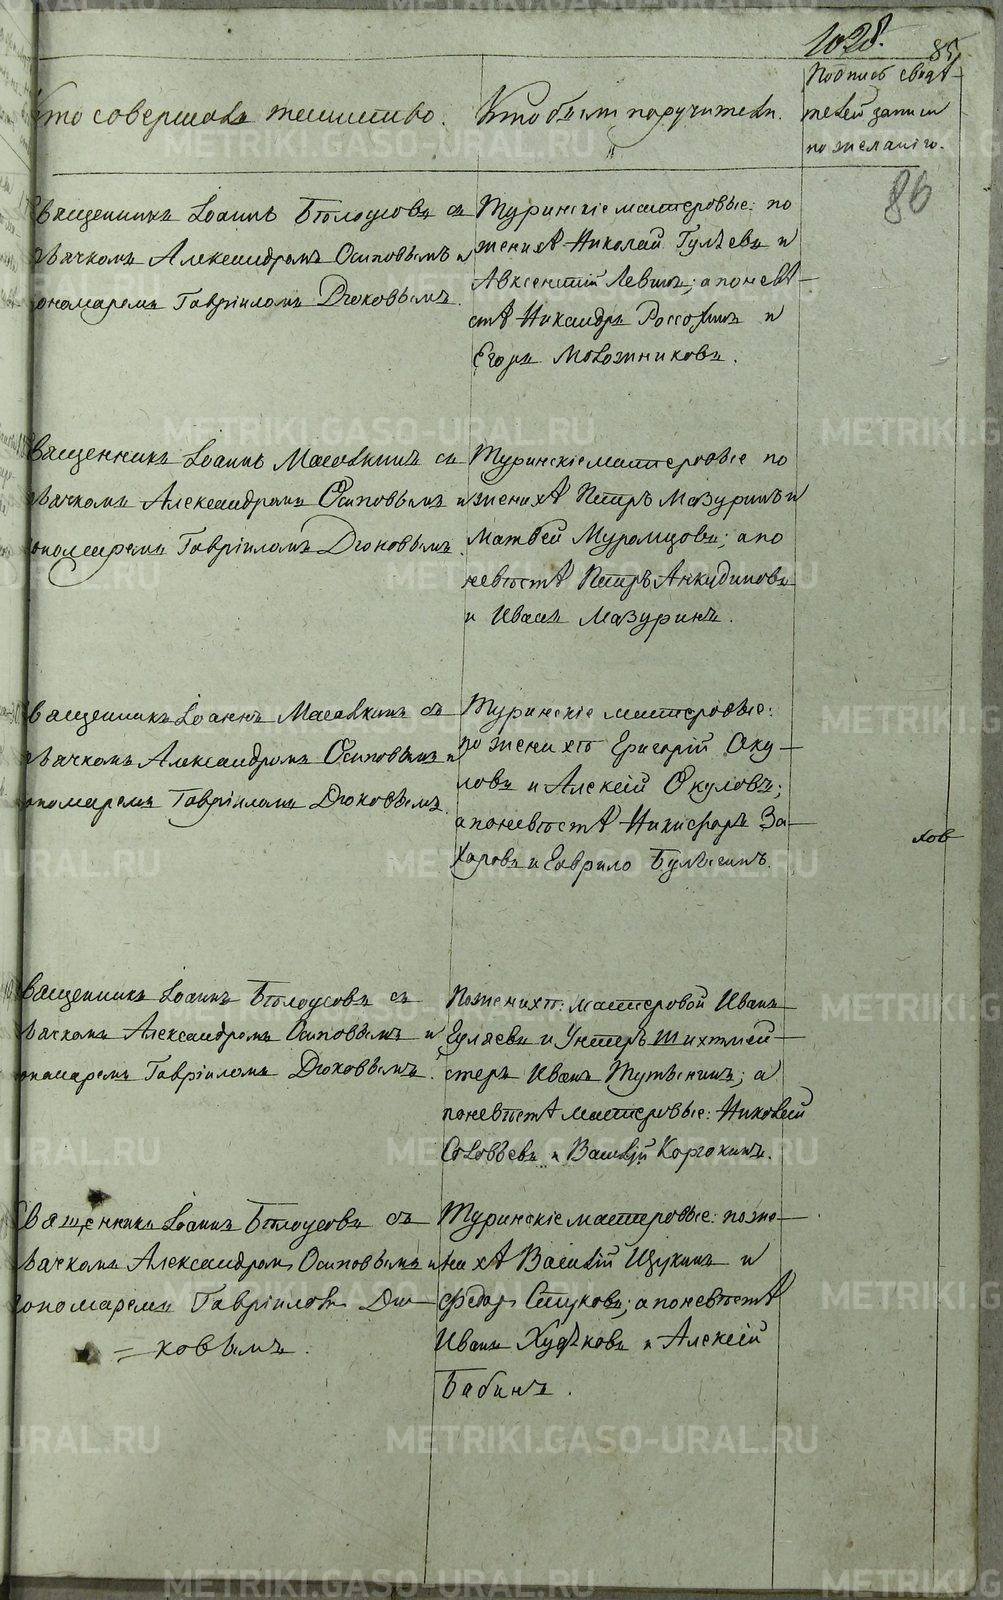 1028.
85
Кто совершалъ таинство.
Кто были поручители.
Подпись свидѣ-
телей записи
по желанію.
86
Священникъ Іоаннъ Бѣлоусовъ съ
дьячкомъ Александромъ Осиповымъ и
пономаремъ Гавріиломъ Дюковымъ.
Туринскіе мастеровые: по
женихѣ Николай Гуляевъ и
Авксентій Левинъ; а по невѣ-
стѣ Никандръ Россохинъ и
Егоръ Моложниковъ.
Священникъ Іоаннъ Масалкинъ съ
дьячкомъ Александромъ Осиповымъ и
пономаремъ Гавріиломъ Дюковымъ.
Туринскіе мастеровые по
женихѣ Петръ Мазуринъ и
Матвей Муромцовъ; а по
невѣстѣ Петръ Анкудиновъ
и Иванъ Мазуринъ.
Священникъ Іоаннъ Масалкинъ съ
дьячкомъ Александромъ Осиповымъ и
пономаремъ Гавріиломъ Дюковымъ.
Туринскіе мастеровые:
по женихѣ Григорій Оку-
ловъ и Алексій Окуловъ;
а по невѣстѣ Никифоръ За-
харовъ и Гаврило Булыгинъ.
хов
Священникъ Іоаннъ Бѣлоусовъ съ
дьячкомъ Александромъ Осиповымъ и
пономаремъ Гавріиломъ Дюковымъ.
По женихѣ: мастеровой Иванъ
Гуляевъ и Унтеръ шихтмей-
стеръ Иванъ; а
по невѣстѣ мастеровые: Николай
Соловьевъ и Василій Корюкинъ.
Священникъ Іоаннъ Бѣлоусовъ съ
дьячкомъ Александромъ Осиповымъ и
пономаремъ Гавріиломъ Дю-
ковымъ.
Туринскіе мастеровые: по же-
нихѣ Василій Щукинъ и
Федоръ Стуковъ; а по невѣстѣ
Иванъ Худяковъ и Алексій
Бабинъ.
METRIKI.GASO-URAL.RU